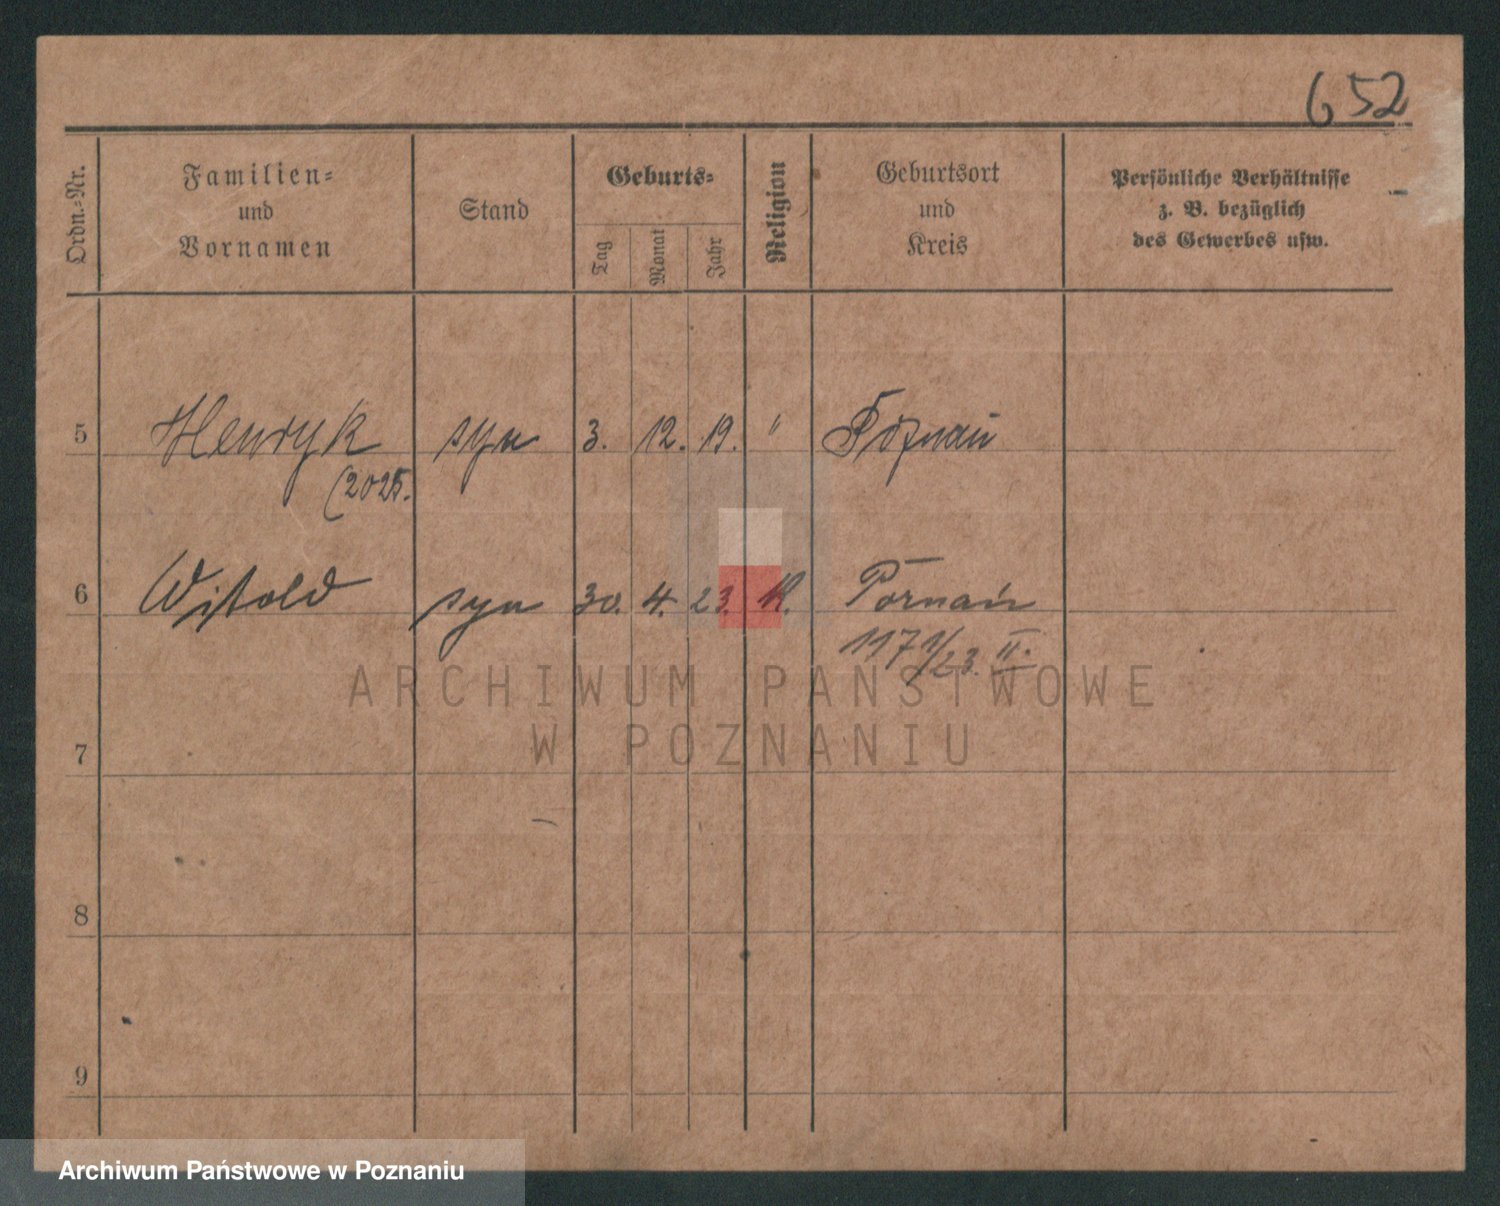 652
Ordn.-Nr.
Familien-
und
Vornamen
Stand
Geburts-
Tag
Monat
Jahr
Religion
Geburtsort
und
Kreis
Persönliche Verhältnisse
z. B. bezüglich
des Gewerbes usw.
5 Henryk syn 3. 12. 19. " Poznań
(2025.
6 Witold syn 30. 4. 23. K. Poznań
1171/23. II.
ARCHIWUM PAŃSTWOWE
W POZNANIU
7
8
9
Archiwum Państwowe w Poznaniu